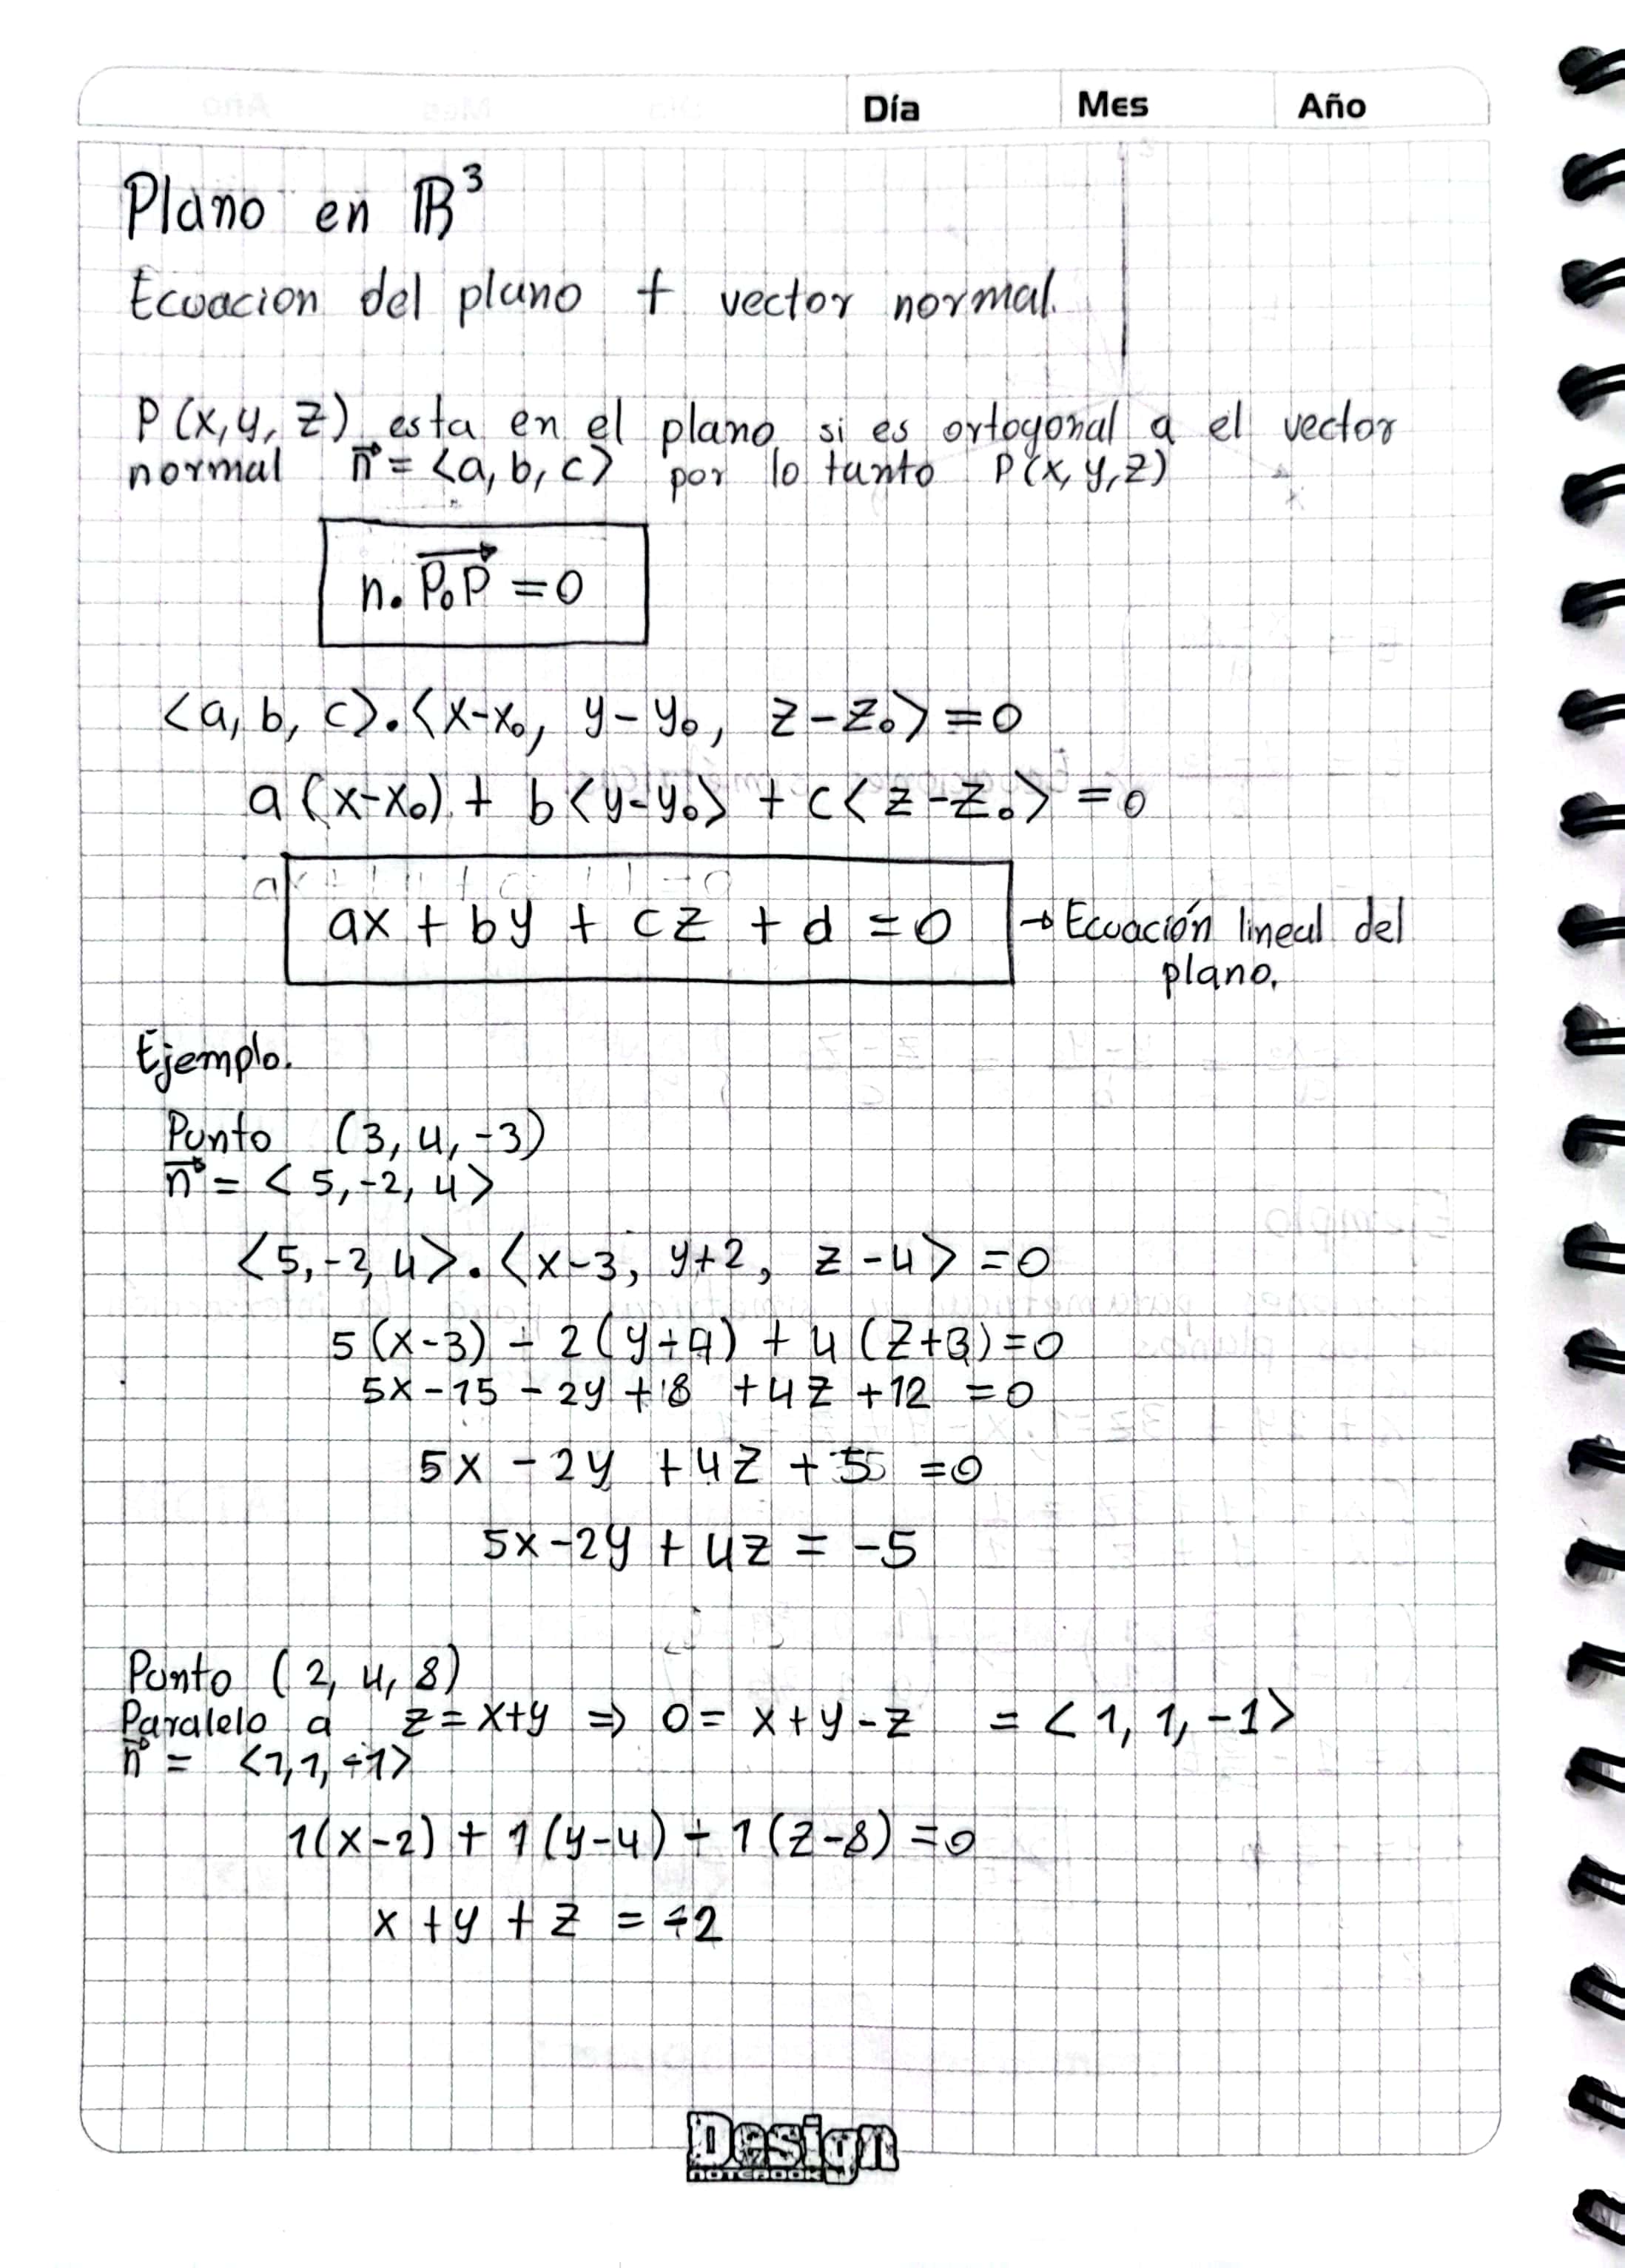 Día Mes Año
Plano en ℝ³
Ecuacion del plano + vector normal.
P(x, y, z) esta en el plano si es ortogonal a el vector
normal n⃗ = <a, b, c> por lo tanto P(x, y, z)
n. P₀P⃗ = 0
<a, b, c>.<x-x₀, y-y₀, z-z₀> = 0
a(x-x₀) + b<y-y₀> + c<z-z₀> = 0
ax + by + cz + d = 0 → Ecuación lineal del
plano.
Ejemplo.
Punto (3, 4, -3)
n⃗ = <5, -2, 4>
<5, -2, 4>.<x-3, y+2, z-4> = 0
5(x-3) - 2(y+4) + 4(z+3) = 0
5x - 15 - 2y + 8 + 4z + 12 = 0
5x - 2y + 4z + 5 = 0
5x - 2y + 4z = -5
Punto (2, 4, 8)
Paralelo a z = x+y ⇒ 0 = x+y-z = <1, 1, -1>
n⃗ = <1, 1, -1>
1(x-2) + 1(y-4) - 1(z-8) = 0
x + y + z = -2
Design
NOTEBOOK